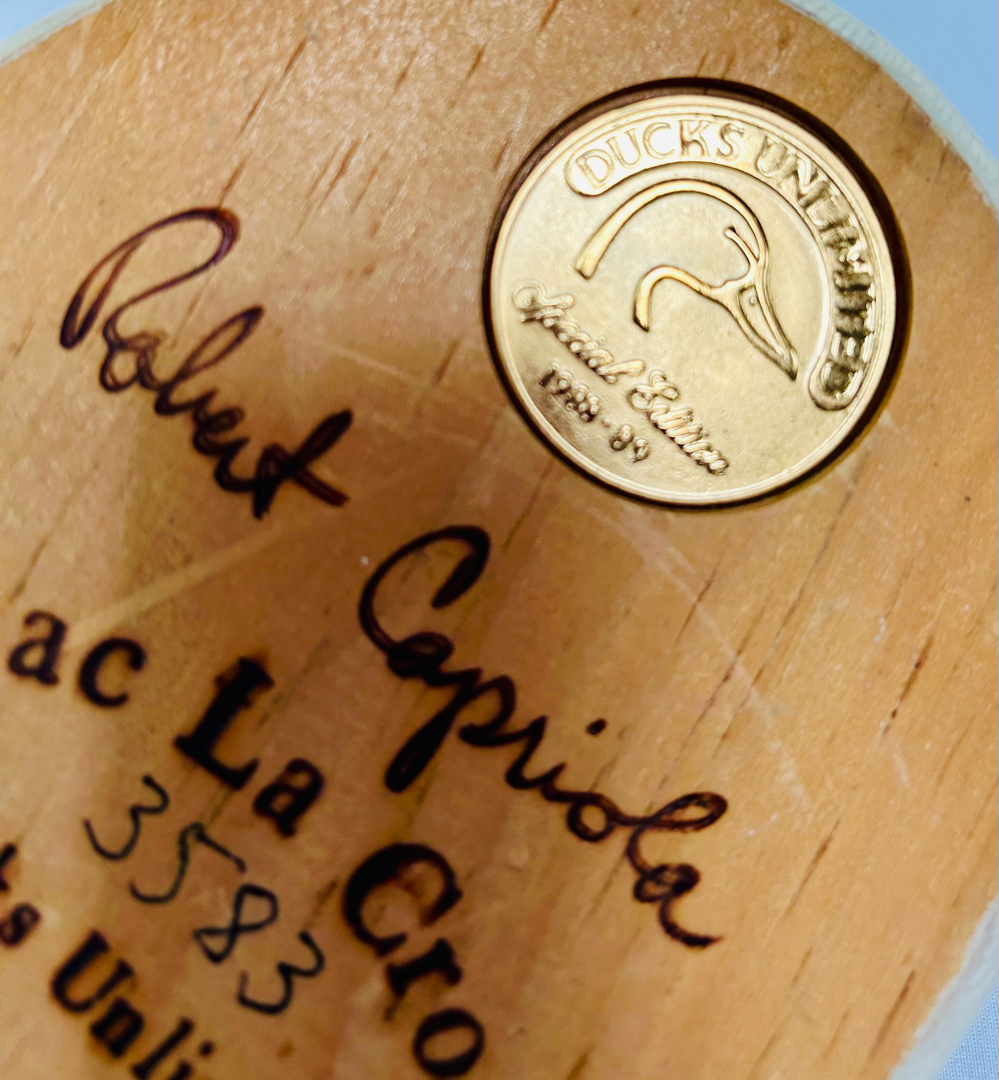 DUCKS UNLIMITED
Special Edition
1988-89
Robert Capriola
ac La Cro
3583
s Unli